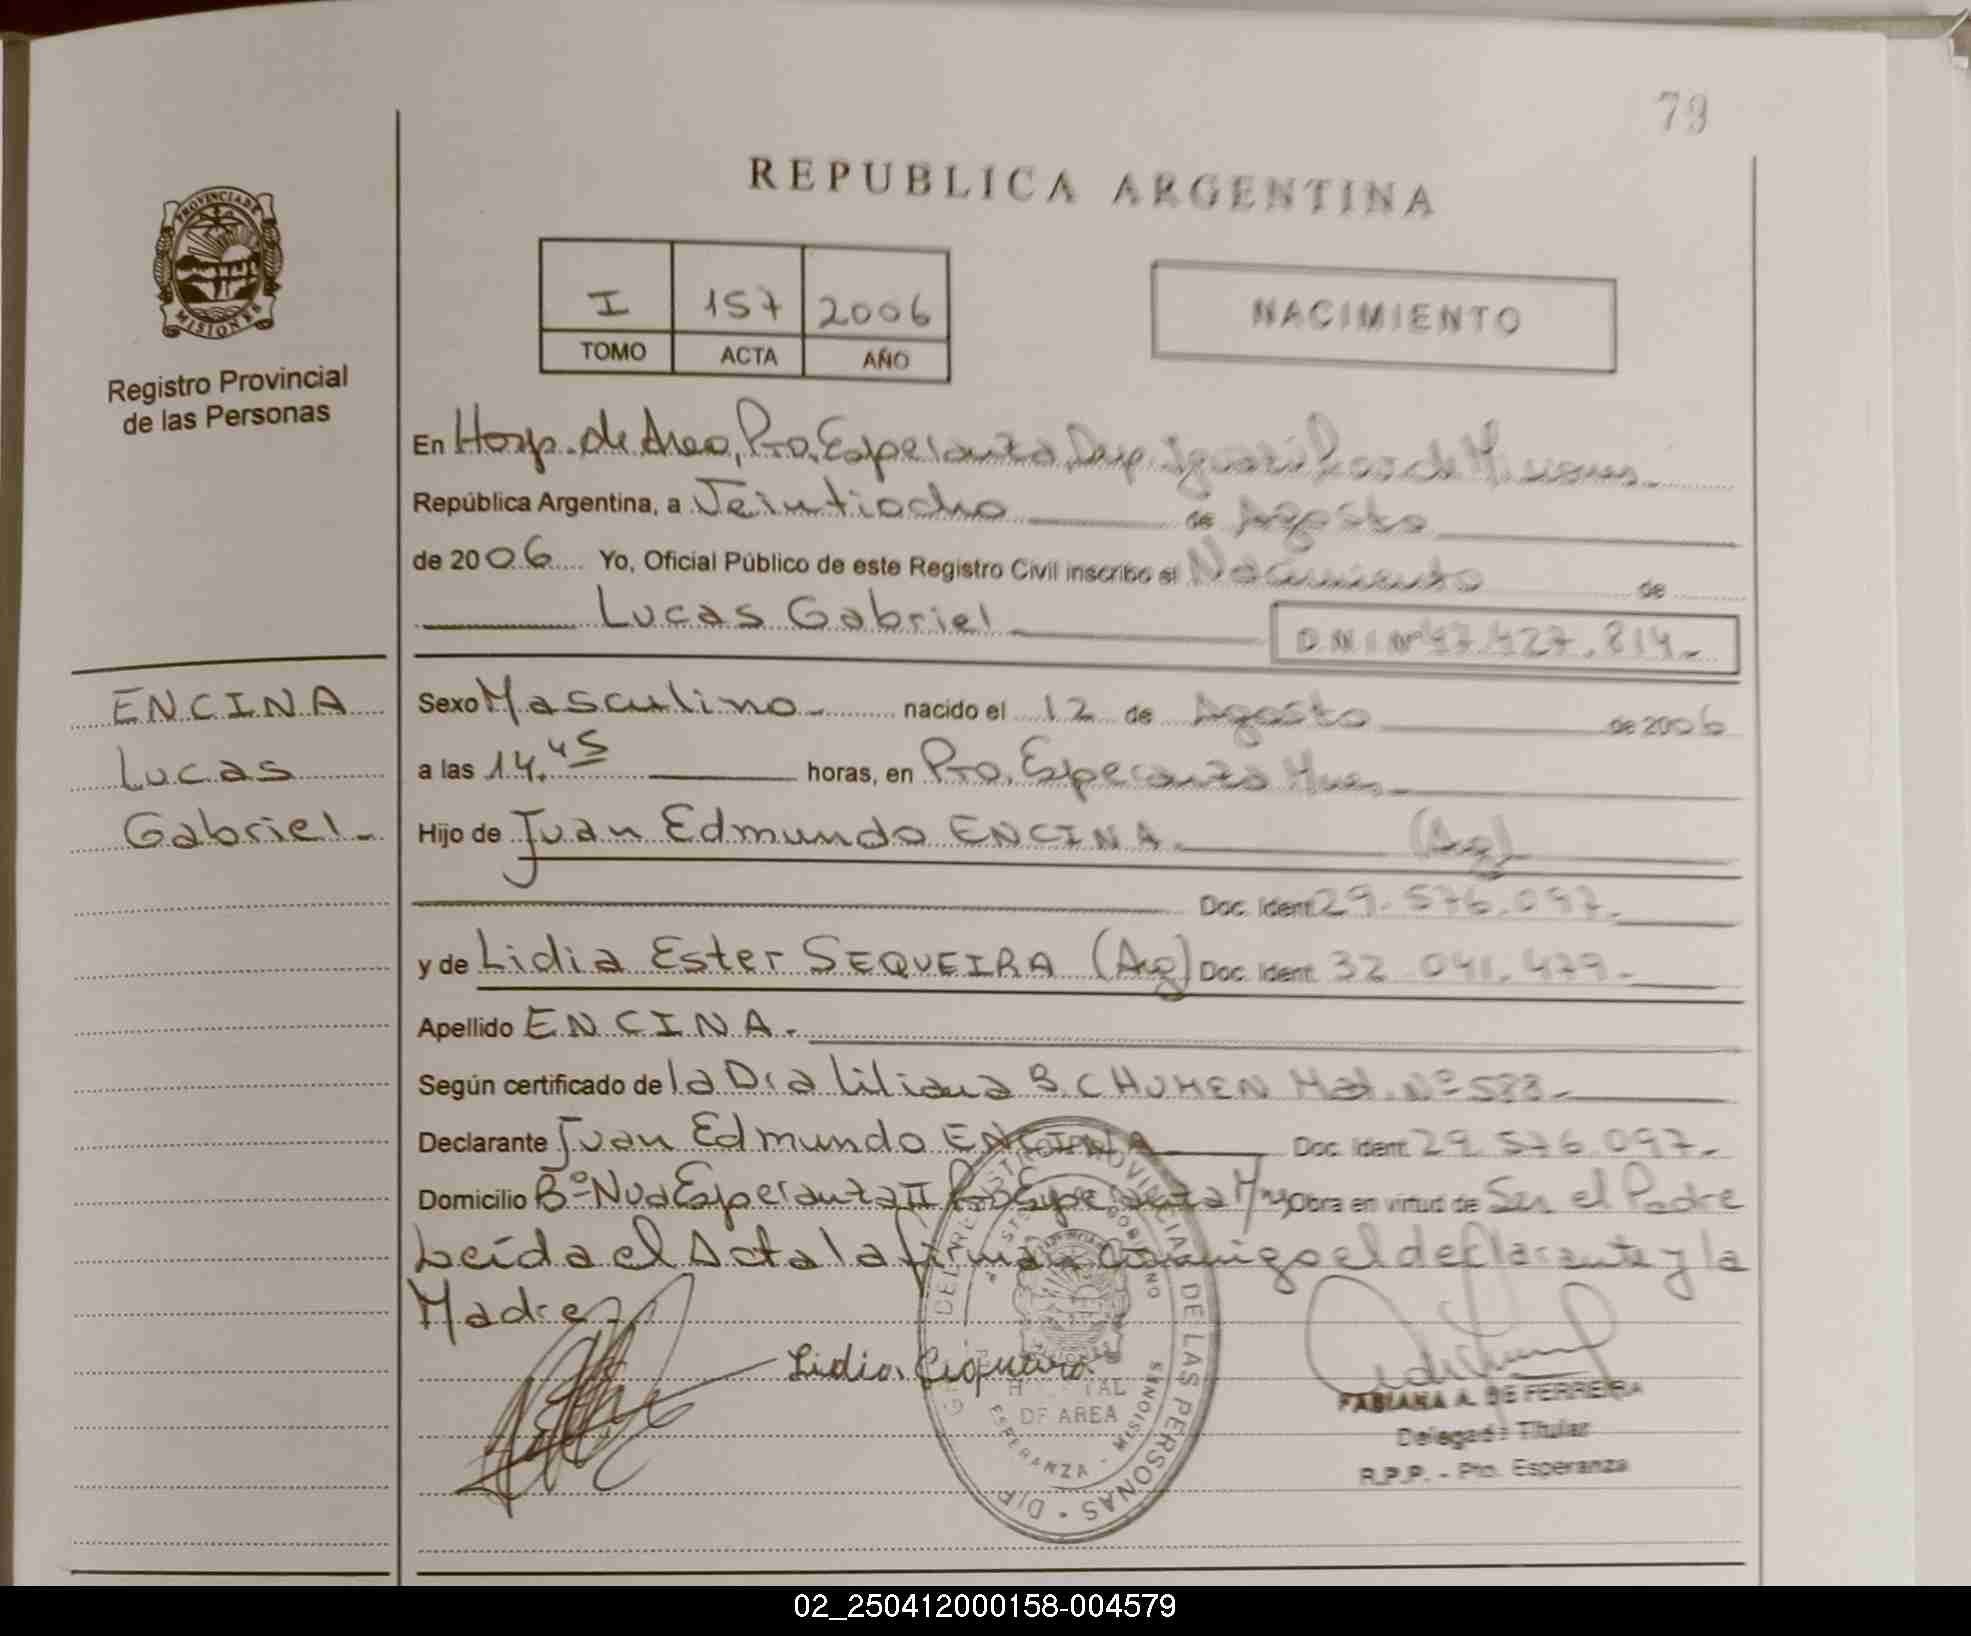 79
REPUBLICA ARGENTINA
PROVINCIA DE
MISIONES
Registro Provincial
de las Personas
I 157 2006
TOMO ACTA AÑO
NACIMIENTO
En Hosp. de Area, Pto. Esperanza Dep. Iguazú Pcia de Misiones.
República Argentina, a Veintiocho de Agosto
de 2006 Yo, Oficial Público de este Registro Civil inscribo el Nacimiento de
Lucas Gabriel
DNI Nº 47.427.814.-
ENCINA
Lucas
Gabriel.-
Sexo Masculino.- nacido el 12 de Agosto de 2006
a las 14.45 horas, en Pto. Esperanza Mnes.
Hijo de Juan Edmundo ENCINA. (Arg)
Doc. Ident. 29.576.097.-
y de Lidia Ester SEQUEIRA (Arg) Doc. Ident. 32.041.479.-
Apellido ENCINA.-
Según certificado de la Dra Liliana B. CHUMEN Mat. Nº 583.-
Declarante Juan Edmundo ENCINA Doc. Ident. 29.576.097.-
Domicilio Bº Nva Esperanza II Pto Esperanza Mnes Obra en virtud de Ser el Padre
Leída el Acta la firman conmigo el declarante y la
Madre.-
Lidia Ciqueira
DIR DEL REGISTRO PROVINCIAL DE LAS PERSONAS
HOSPITAL
DE AREA
ESPERANZA - MISIONES
FABIANA A. DE FERREIRA
Delegada Titular
R.P.P. - Pto. Esperanza
02_250412000158-004579